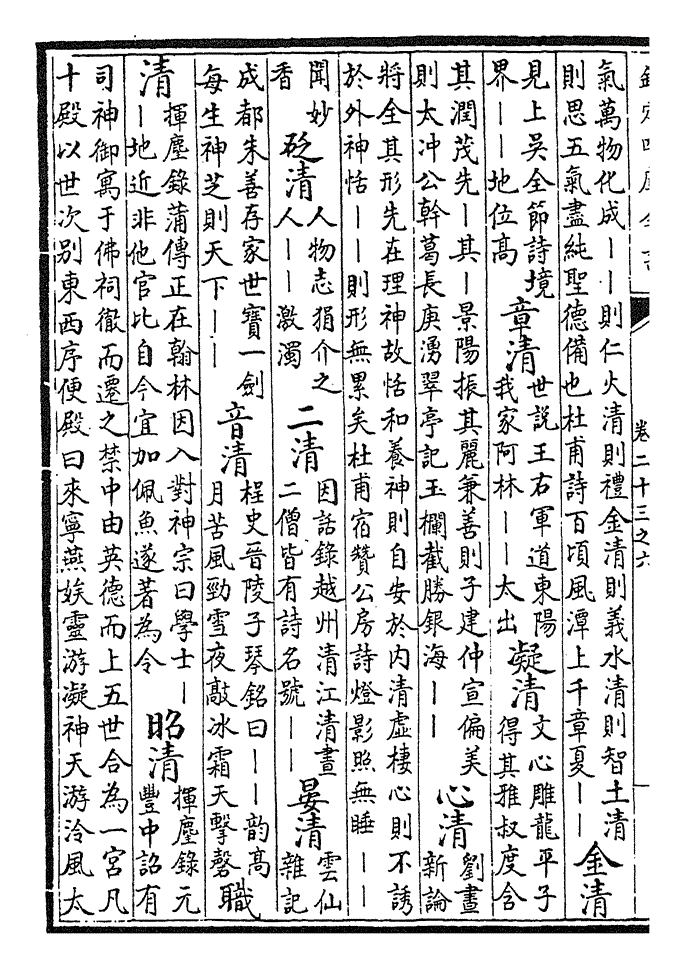 欽定四庫全書
卷二十三之六
氣萬物化成——則仁火清則禮金清則義水清則智土清
則思五氣盡純聖德備也杜甫詩百頃風潭上千章夏——
金清
見上吳全節詩境
界——地位高
章清
世說王右軍道東陽
我家阿林——太出
凝清
文心雕龍平子
得其雅叔度含
其潤茂先—其—景陽振其麗兼善則子建仲宣偏美
則太沖公幹葛長庚湧翠亭記玉欄截勝銀海——
心清
劉晝
新論
將全其形先在理神故恬和養神則自安於內清虛棲心則不誘
於外神恬——則形無累矣杜甫宿贊公房詩燈影照無睡——
聞妙
香
砭清
人物志狷介之
人——激濁
二清
因話錄越州清江清晝
二僧皆有詩名號——
晏清
雲仙
雜記
成都朱善存家世寶一劍
每生神芝則天下——
音清
桯史晉陵子琴銘曰——韵高
月苦風勁雪夜敲冰霜天擊磬
職
清
揮麈錄蒲傳正在翰林因入對神宗曰學士—
—地近非他官比自今宜加佩魚遂著為令
昭清
揮麈錄元
豐中詔有
司神御寓于佛祠徹而遷之禁中由英德而上五世合為一宮凡
十殿以世次別東西序便殿曰來寧燕娭靈游凝神天游泠風太